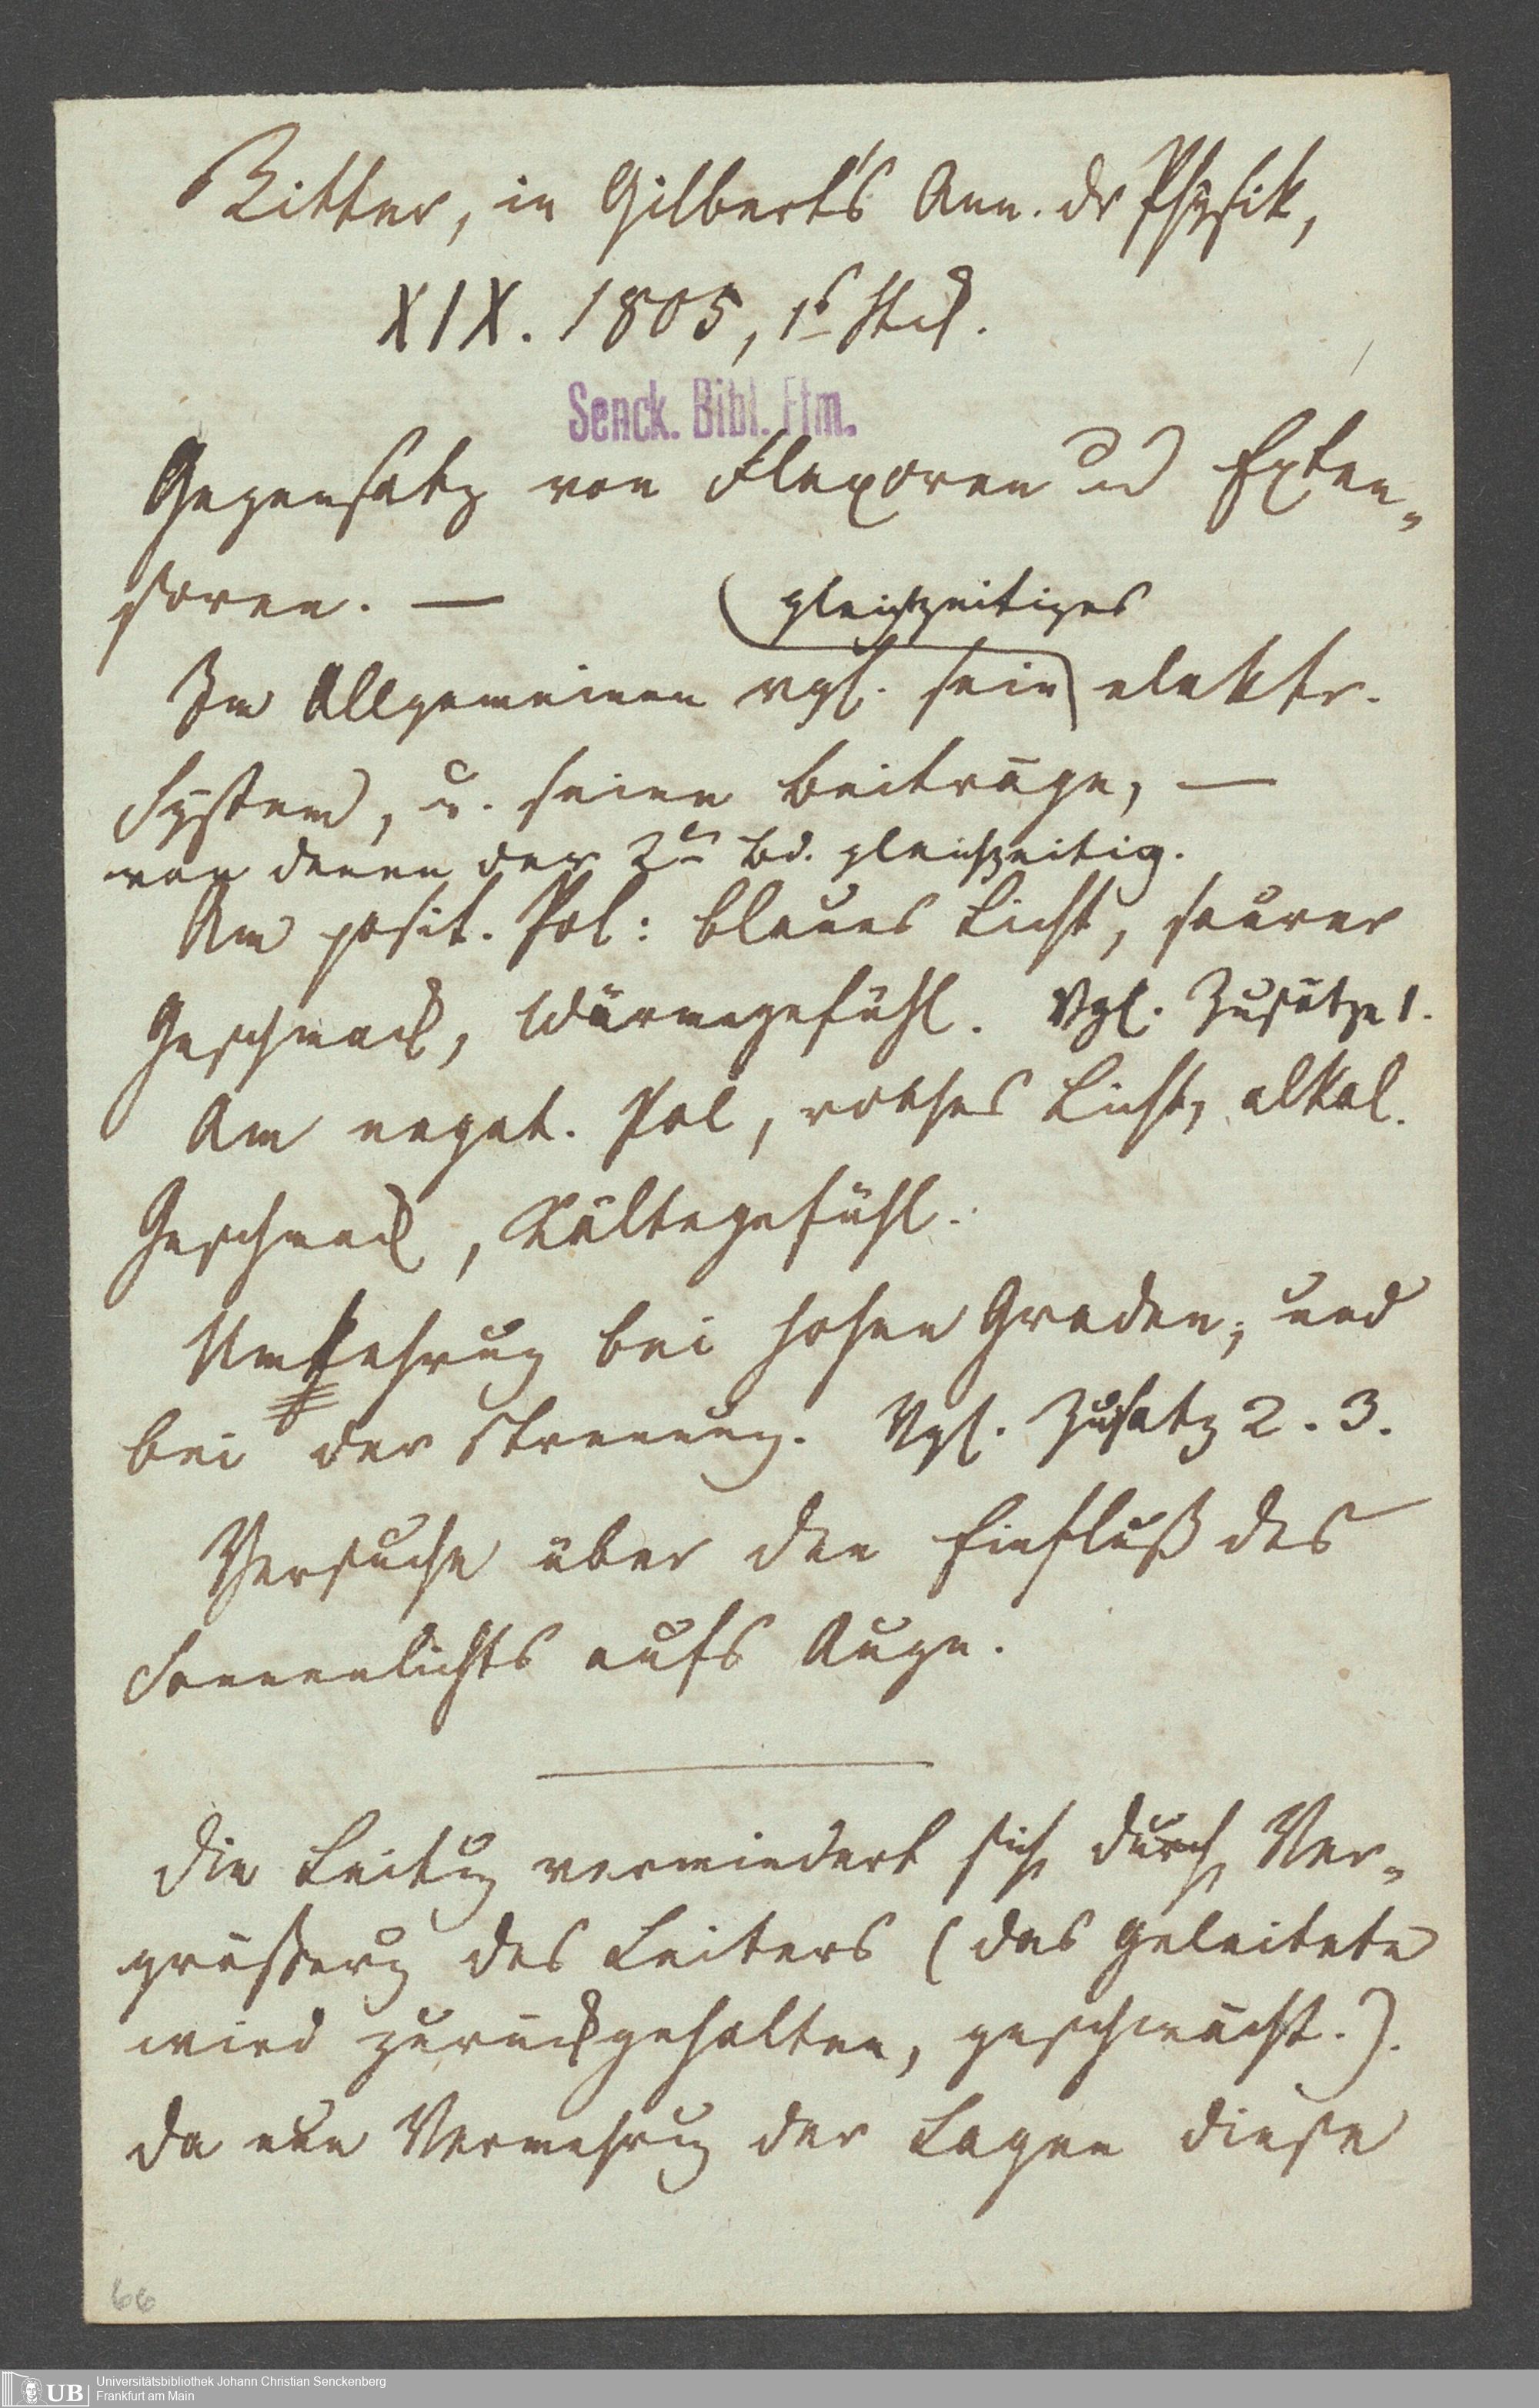 Ritter, in Gilbert's Ann. dr Physik,
XIX. 1805, 1s Stck.
Senck. Bibl. Ffm.
Gegensatz von Flexoren und Exten-
soren. —
gleichzeitiges
Im Allgemeinen vgl. sein elektr.
System, u. seine Beiträge, —
von denen der 2te Bd. gleichzeitig.
Am posit. Pol: blaues Licht, saurer
Geschmack, Wärmegefühl. Vgl. Zusätze 1.
Am negat. Pol, rothes Licht, alkal.
Geschmack, Kältegefühl.
Umkehrung bei hohen Graden; und
bei der Trennung. Vgl. Zusatz 2. 3.
Versuche über den Einfluß des
Sonnenlichts aufs Auge.
Die Leitung vermindert sich durch Ver-
größerung des Leiters (das Geleitete
wird zurückgehalten, geschwächt.).
Da nun Vermehrung der Lagen diese
66
UB
Universitätsbibliothek Johann Christian Senckenberg
Frankfurt am Main